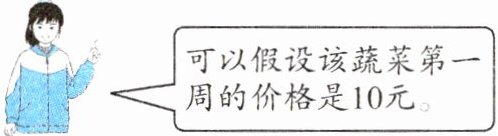 可以假设该蔬菜第一
周的价格是10元。